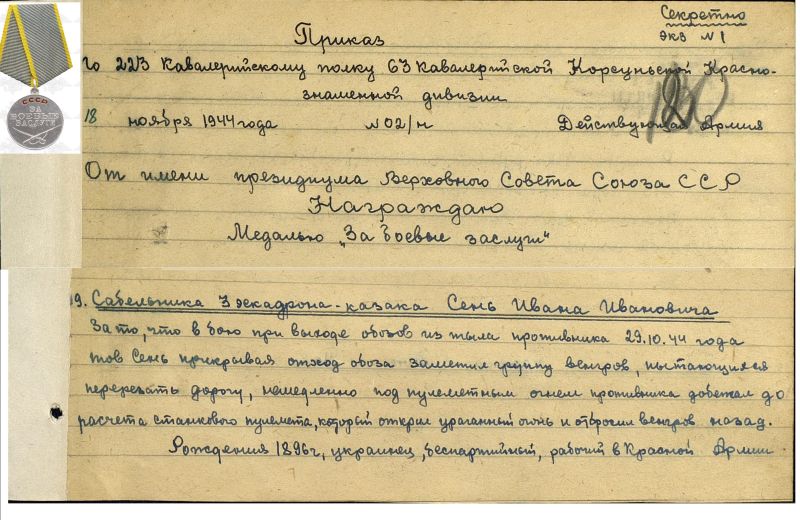 СССР
ЗА
БОЕВЫЕ
ЗАСЛУГИ
Секретно
экз N 1
Приказ
го 223 Кавалерийскому полку 63 Кавалерийской Корсуньской Красно-
знаменной дивизии
18 ноября 1944 года N 02/н Действующая Армия
От имени президиума Верховного Совета Союза ССР
Награждаю
Медалью „За боевые заслуги"
19. Сабельника 3 эскадрона - казака Сень Ивана Ивановича
За то, что в бою при выходе обозов из тыла противника 29.10.44 года
тов Сень прикрывая отход обоза заметил группу венгров, пытающияся
перерезать дорогу, немедленно под пулеметным огнем противника добежал до
расчета станкового пулемета, который открыл ураганный огонь и отбросил венгров назад.
Рождения 1896 г, украинец, беспартийный, рабочий в Красной Армии